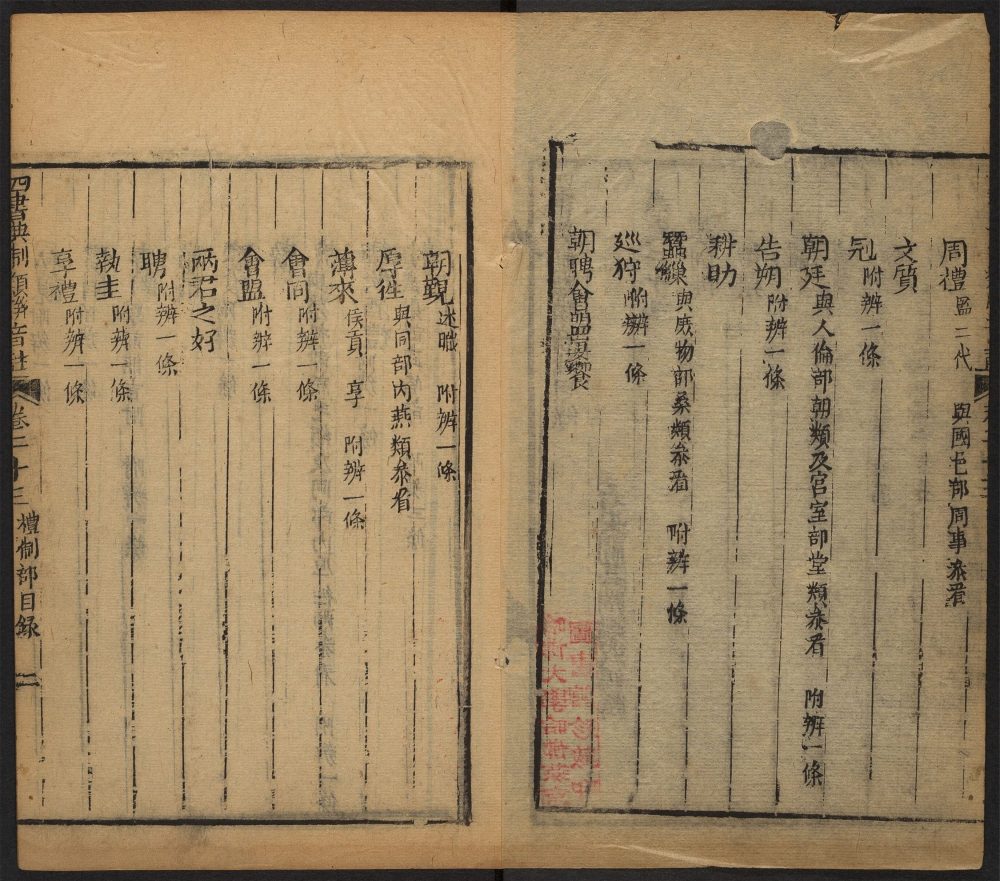 周禮 監二代 與國邑部周事叅看
文質
冠 附辨一條
朝廷 與人倫部朝類及宮室部堂類叅看 附辨一條
告朔 附辨一條
耕助
蠶繅 與庶物部桑類叅看 附辨一條
巡狩 附辦一條
朝聘會盟燕饗
朝覲 述職 附辨一條
厚往 與同部内燕類叅看
薄來 侯貢 享 附辨一條
會同 附辨一條
會盟 附辨一條
兩君之好
聘 附辨一條
執圭 附辨一條
享禮 附辨一條
四書典制類聯音註 卷二十三 禮制部目録 二